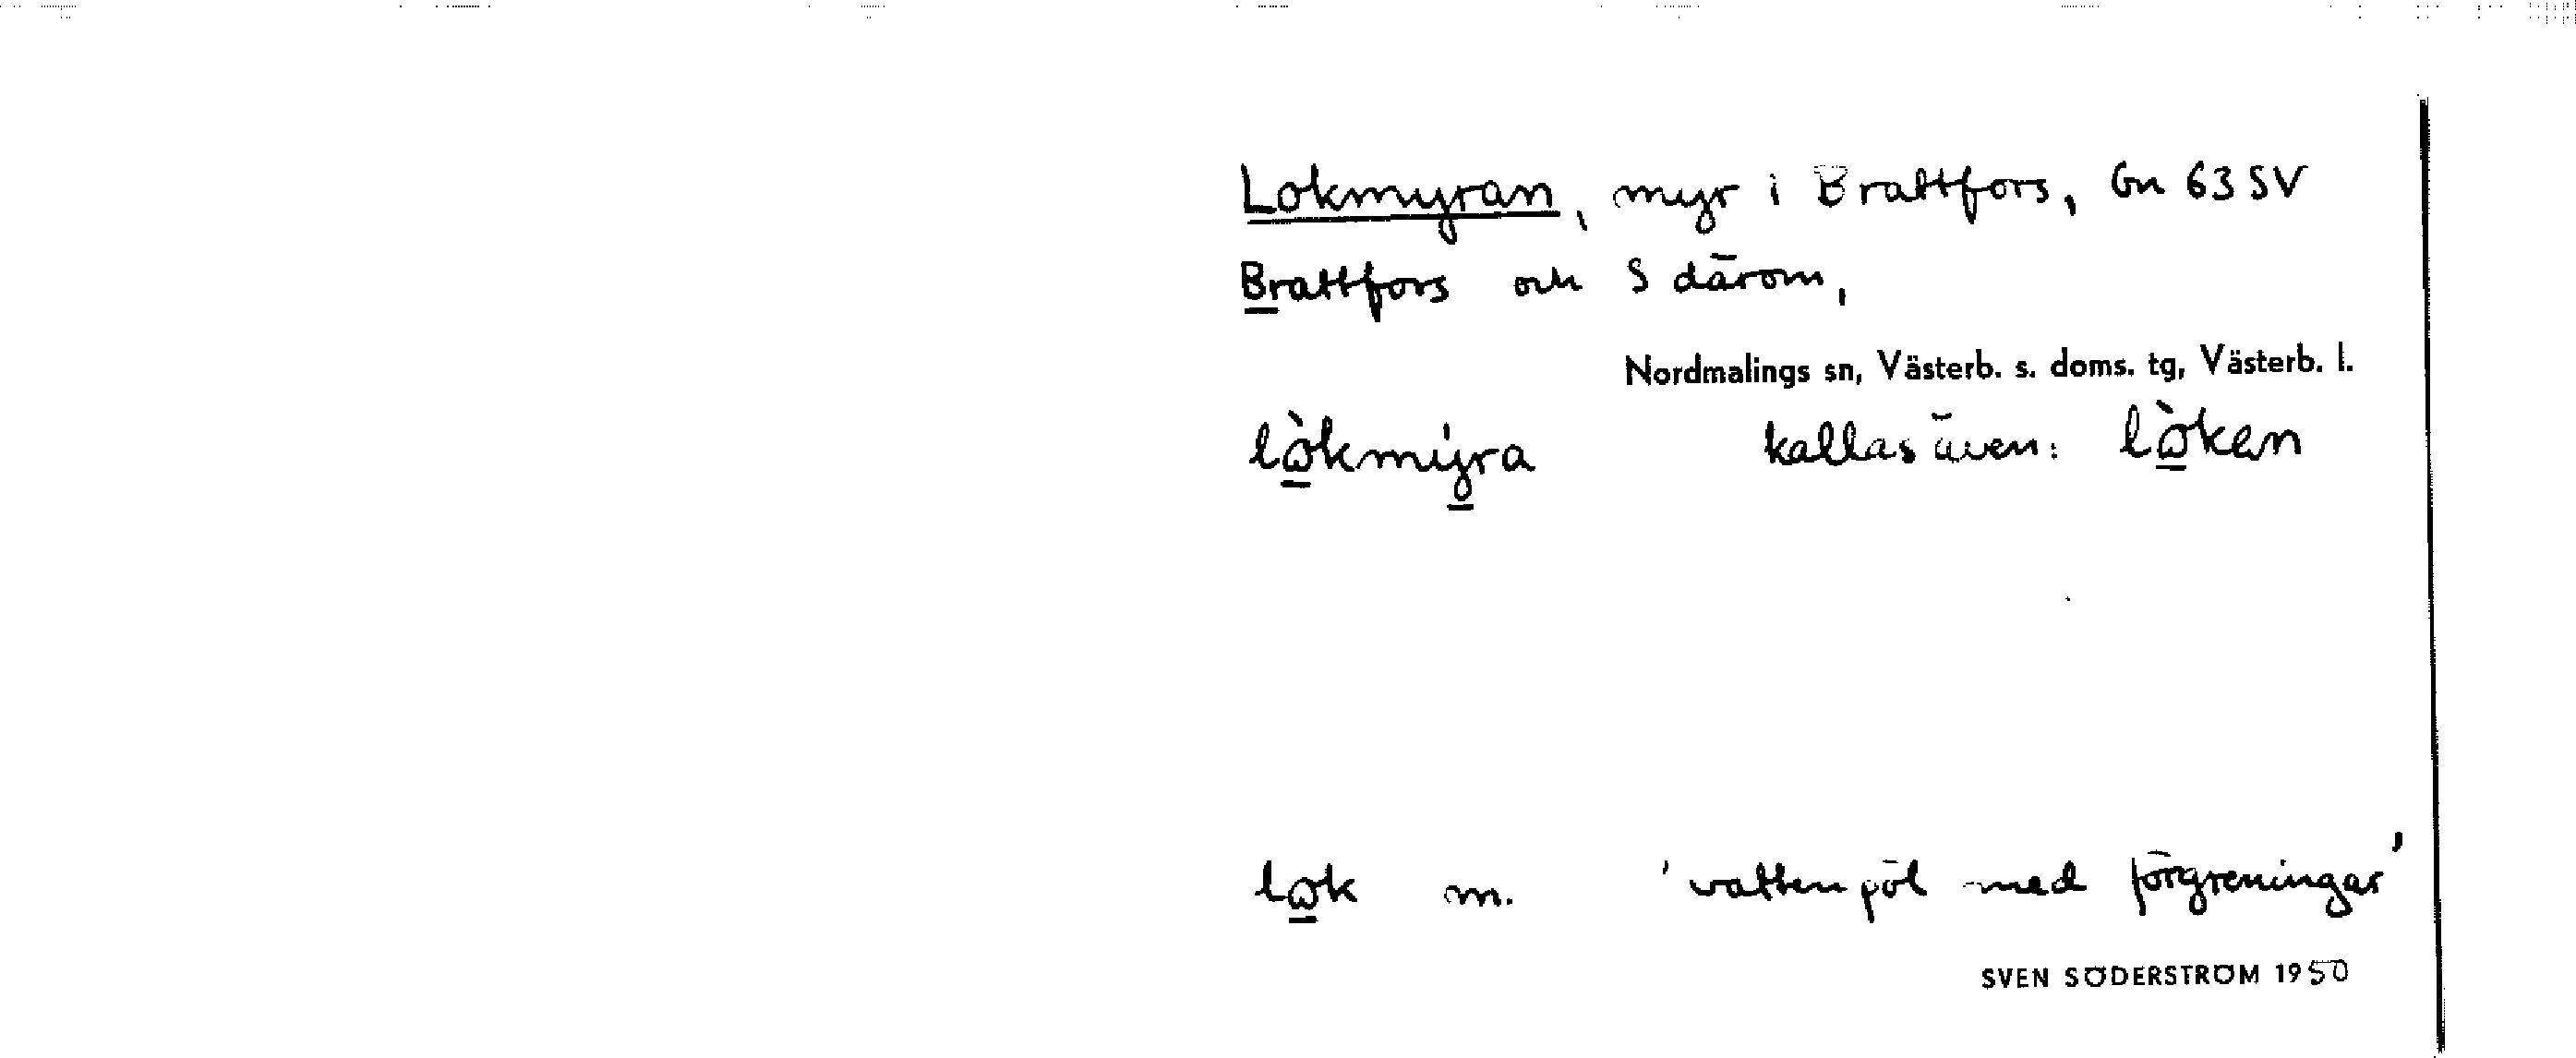 Lokmyran, myr i Brattfors, Gn 63 SV
Brattfors och S därom,
Nordmalings sn, Västerb. s. doms. tg, Västerb. l.
lò̱kmýra kallas även: lò̱ken
lo̱k m. 'vattenpöl med förgreningar'
SVEN SÖDERSTRÖM 1950